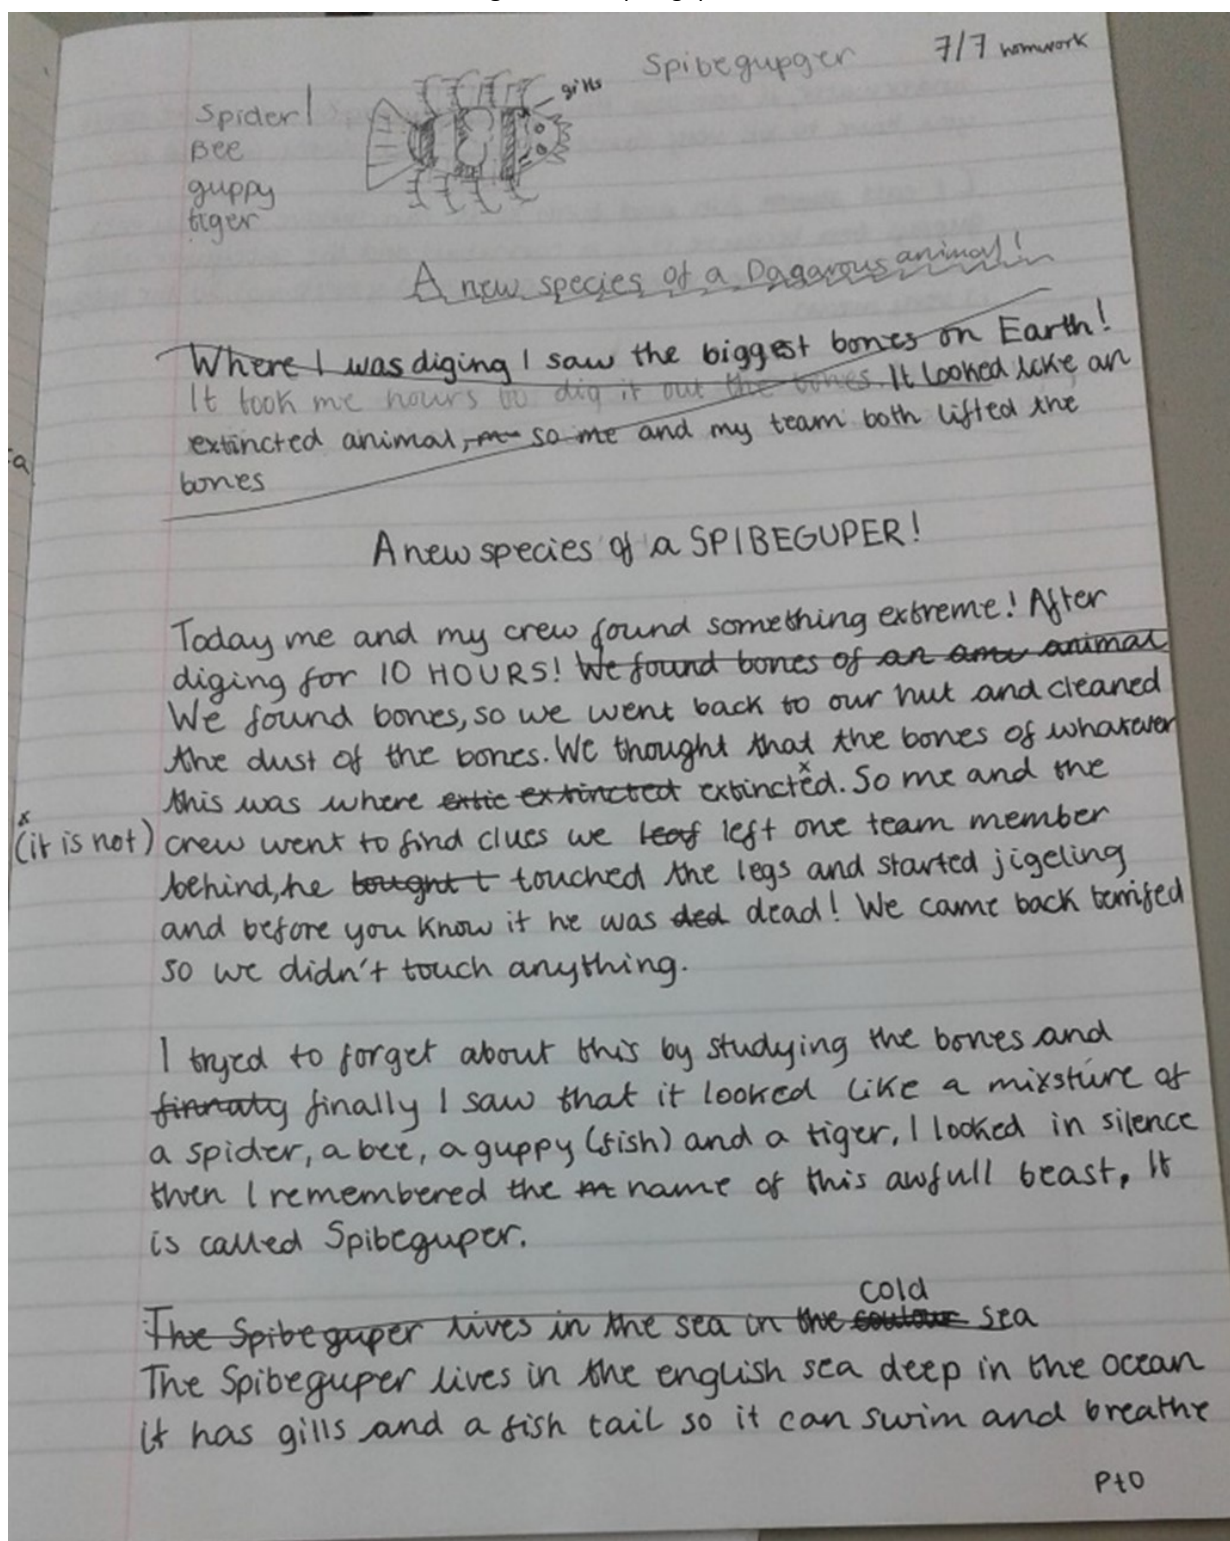 Spibegupger
7/7 homwork
gills
Spider
Bee
guppy
tiger
A new species of a Dagarous animal!
Where I was diging I saw the biggest bones on Earth!
It took me hours to dig it out the bones. It looked like an
extincted animal, so me and my team both lifted the
bones
A new species of a SPIBEGUPER!
Today me and my crew found something extreme! After
diging for 10 HOURS! We found bones of an ami animal
We found bones, so we went back to our hut and cleaned
the dust of the bones. We thought that the bones of whatever
this was where extic extincted extincted. So me and the
(it is not) crew went to find clues we leaf left one team member
behind, he tought t touched the legs and started jigeling
and before you know it he was ded dead! We came back terrifed
so we didn't touch anything.
I tryed to forget about this by studying the bones and
finnaly finally I saw that it looked like a mixsture of
a spider, a bee, a guppy (fish) and a tiger, I looked in silence
then I remembered the name of this awfull beast, It
is called Spibeguper.
The Spibeguper lives in the sea in the cold sea
The Spibeguper lives in the english sea deep in the ocean
it has gills and a fish tail so it can swim and breathe
PtO